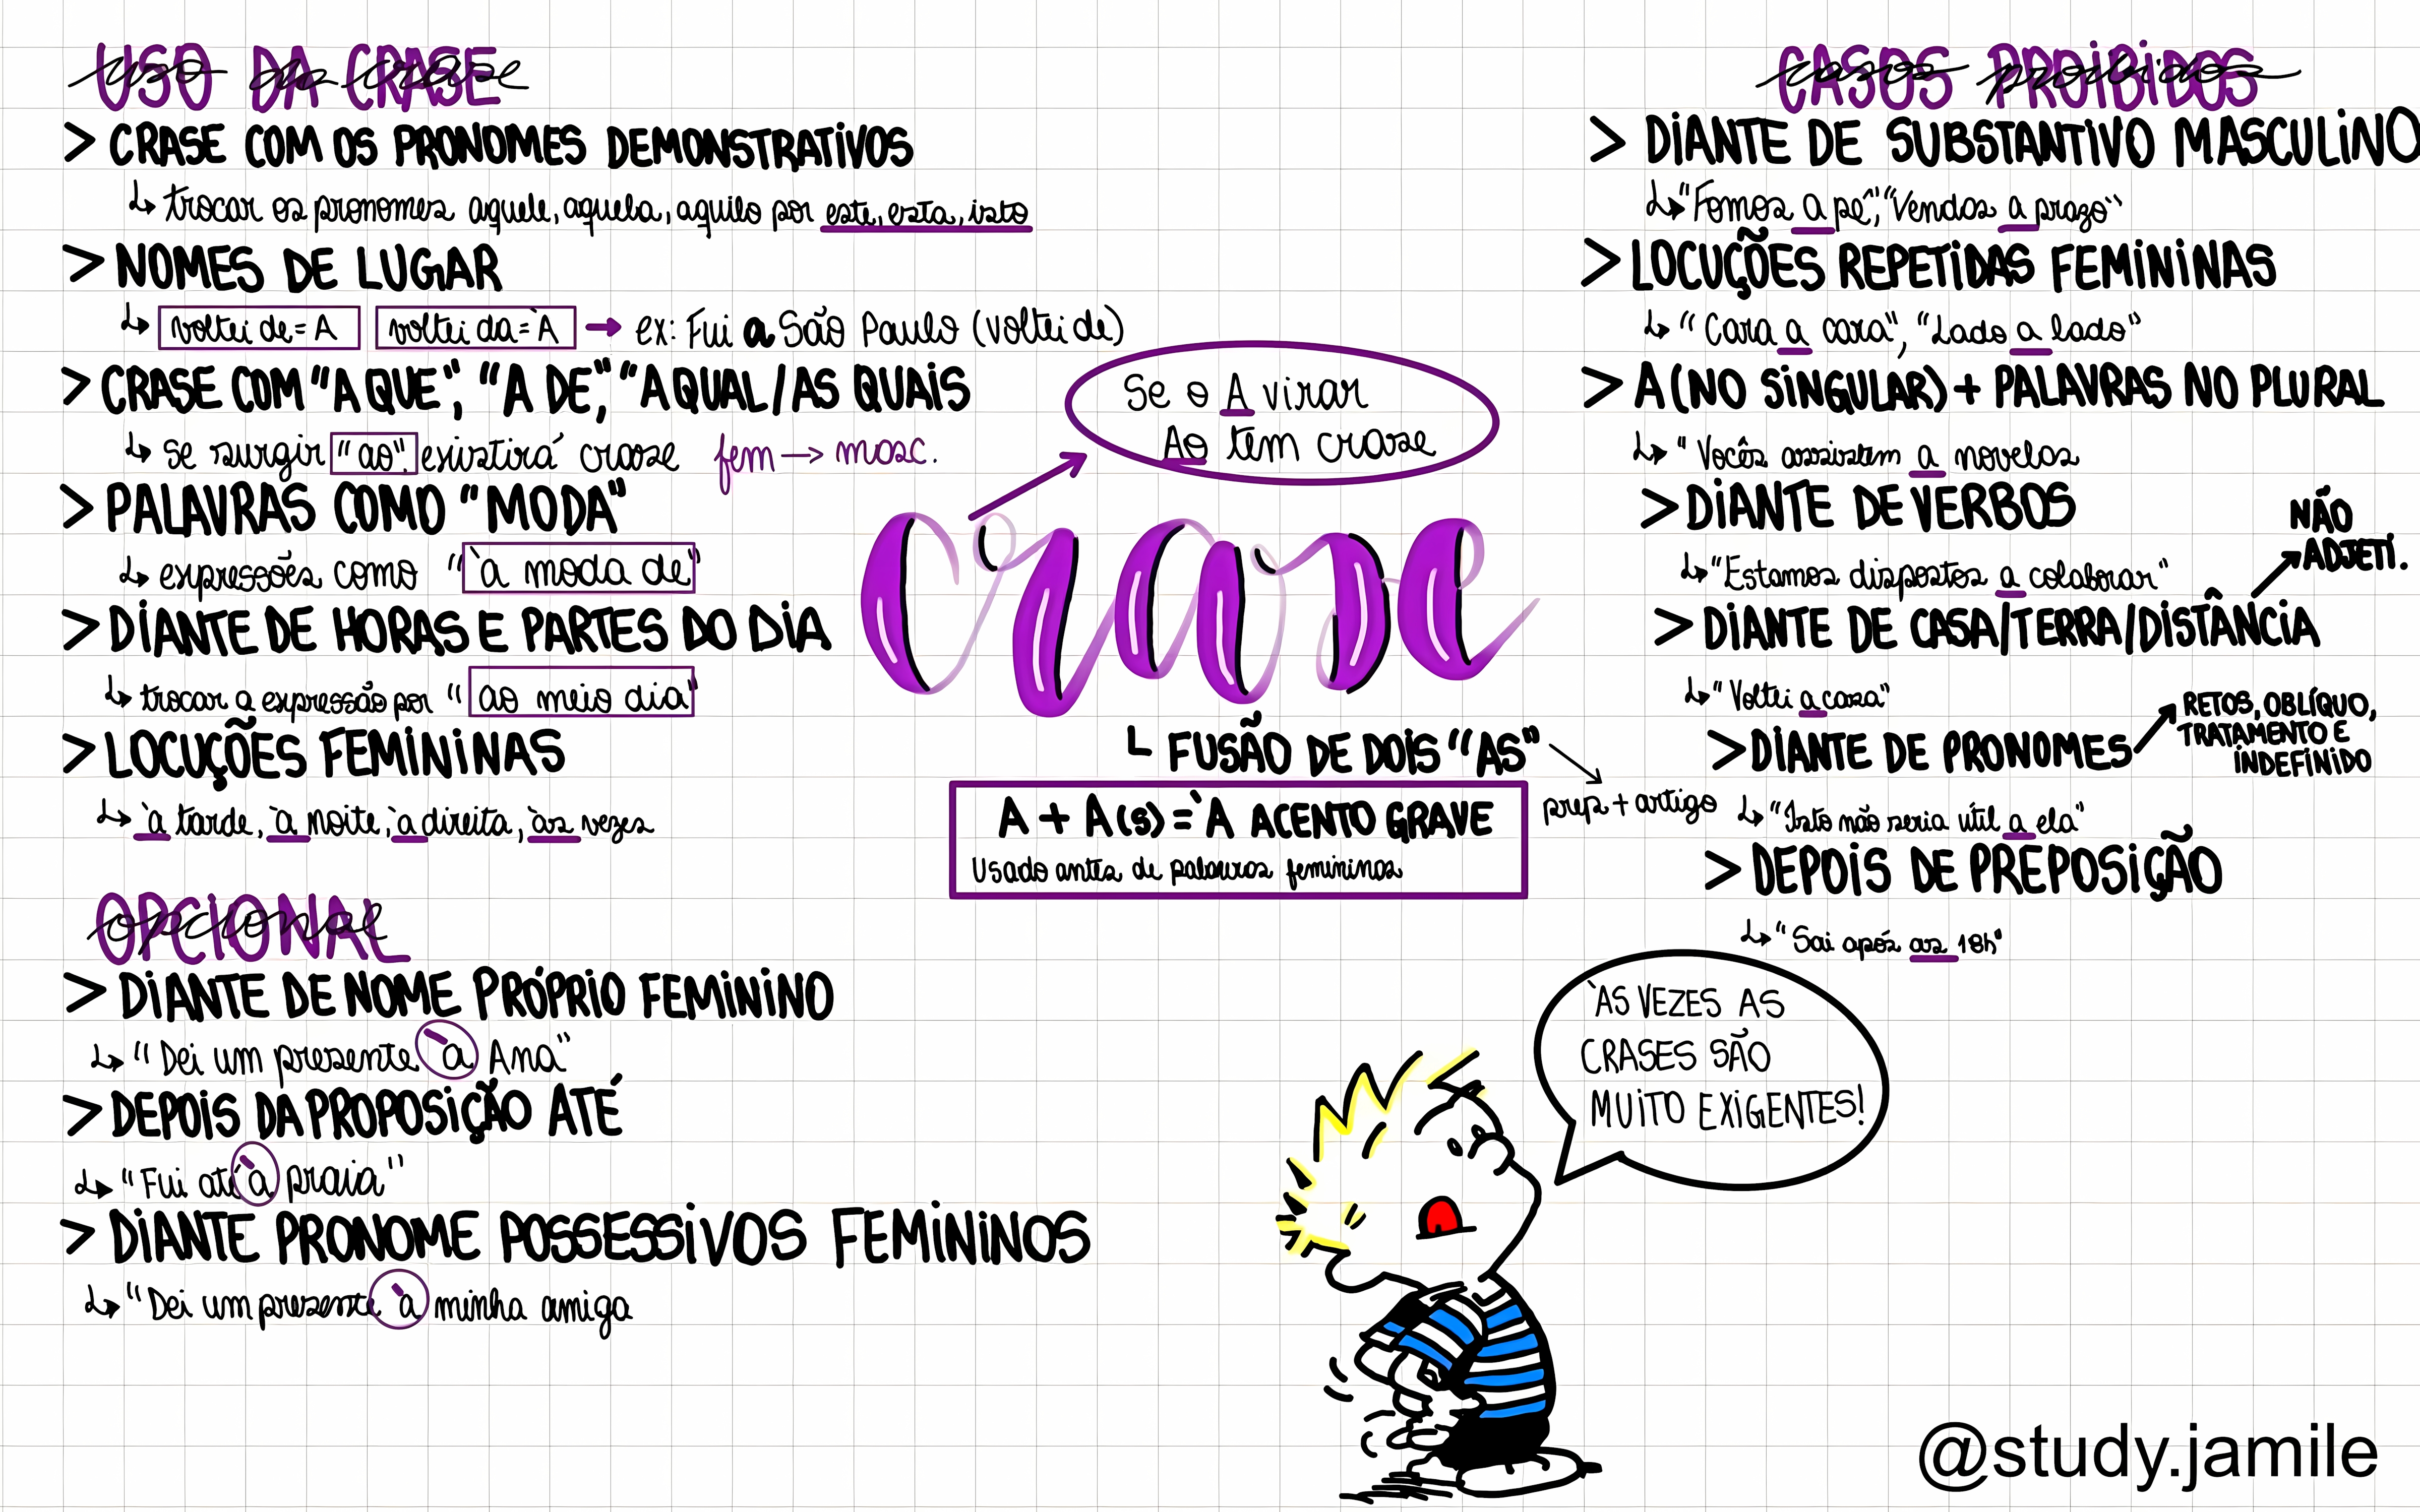 USO DA CRASE
uso da crase
> CRASE COM OS PRONOMES DEMONSTRATIVOS
↳ trocar os pronomes aquele, aquela, aquilo por este, esta, isto
> NOMES DE LUGAR
↳ voltei de = A voltei da = `A → ex: Fui a São Paulo (voltei de)
> CRASE COM "A QUE", "A DE", "A QUAL/AS QUAIS
↳ se surgir "ao", existirá crase fem → masc.
> PALAVRAS COMO "MODA"
↳ expressões como "à moda de"
> DIANTE DE HORAS E PARTES DO DIA
↳ trocar a expressão por "ao meio dia"
> LOCUÇÕES FEMININAS
↳ à tarde, à noite, à direita, às vezes
OPCIONAL
opcional
> DIANTE DE NOME PRÓPRIO FEMININO
↳ "Dei um presente à Ana"
> DEPOIS DA PROPOSIÇÃO ATÉ
↳ "Fui até à praia"
> DIANTE PRONOME POSSESSIVOS FEMININOS
↳ "Dei um presente à minha amiga
Se o A virar
Ao tem crase
crase
└ FUSÃO DE DOIS "AS"
prep + artigo
A + A(s) = `A ACENTO GRAVE
Usado antes de palavras femininas
CASOS PROIBIDOS
casos proibidos
> DIANTE DE SUBSTANTIVO MASCULINO
↳ "Fomos a pé", "Vendas a prazo"
> LOCUÇÕES REPETIDAS FEMININAS
↳ "Cara a cara", "Lado a lado"
> A (NO SINGULAR) + PALAVRAS NO PLURAL
↳ "Vocês assistem a novelas
> DIANTE DE VERBOS
↳ "Estamos dispostos a colaborar"
NÃO
ADJETI.
> DIANTE DE CASA/TERRA/DISTÂNCIA
↳ "Voltei a casa"
> DIANTE DE PRONOMES
RETOS, OBLÍQUO,
TRATAMENTO E
INDEFINIDO
↳ "Isto não seria útil a ela"
> DEPOIS DE PREPOSIÇÃO
↳ "Sai após as 18h"
`AS VEZES AS
CRASES SÃO
MUITO EXIGENTES!
@study.jamile